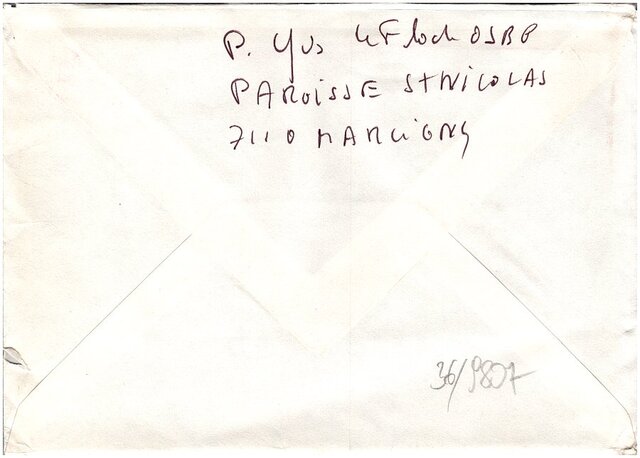 P. Yves Le Floch OSB
PAROISSE ST NICOLAS
71110 MARCIGNY
36/9807